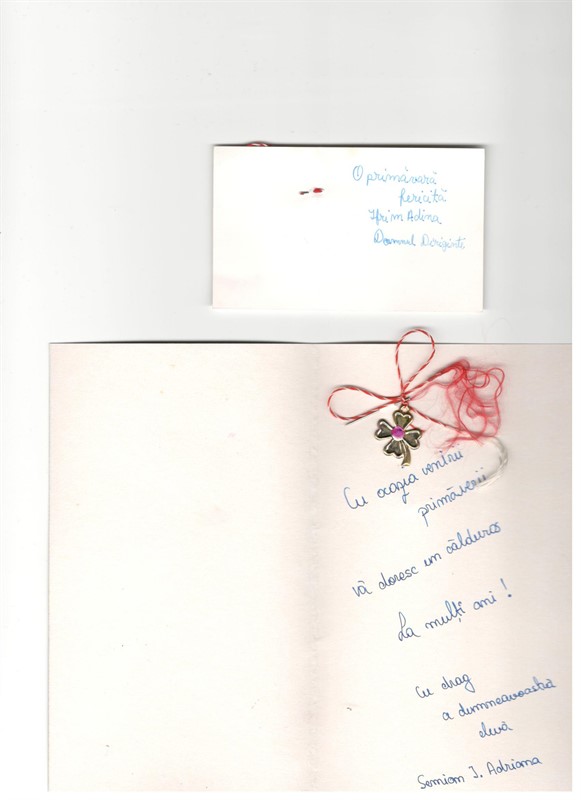 O primăvară
fericită
Ifrim Adina
Domnul Diriginte
Cu ocazia venirii
primăverii
vă doresc un călduros
La mulți ani !
Cu drag
a dumneavoastră
elevă
Semion I. Adriana